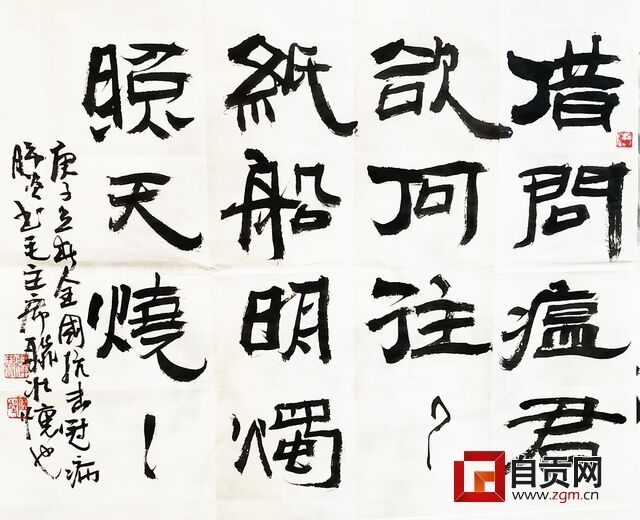 借問瘟君
欲何往？
紙船明燭
照天燒！
庚子立春全國抗击冠病
肺炎书毛主席壮懷也
自贡网
www.zgm.cn